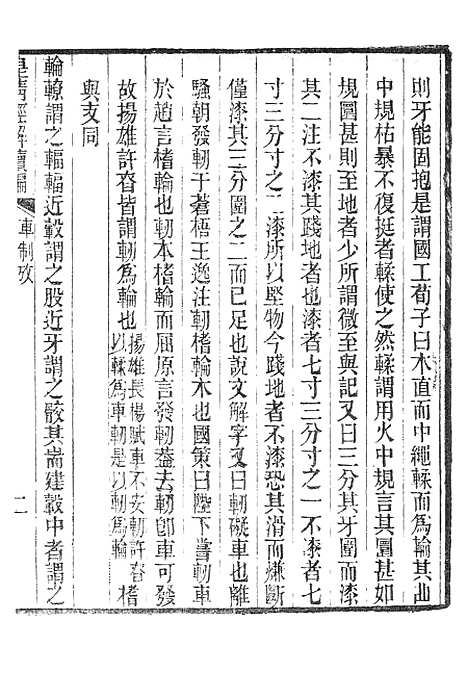 則牙能固抱是謂國工荀子曰木直而中繩輮而爲輪其曲
中規枯暴不復挺者輮使之然輮謂用火中規言其圜甚如
規圜甚則至地者少所謂微至與記又曰三分其牙圍而漆
其二注不漆其踐地者也漆者七寸三分寸之一不漆者七
寸三分寸之二漆所以堅物今踐地者不漆恐其滑而煉斷
僅漆其三分圍之二而已足也說文解字又曰軔礙車也離
騷朝發軔于蒼梧王逸注軔榰輪木也國策曰陛下嘗軔車
於趙言榰輪也軔本榰輪而屈原言發軔葢去軔卽車可發
故揚雄許叴皆謂軔爲輪也揚雄長楊賦車不安軔許叴榰
以輮爲車軔是以軔爲輪
與支同
輪轑謂之輻輻近轂謂之股近牙謂之骹其菑建轂中者謂之
皇淸經解續編
車制攷
二